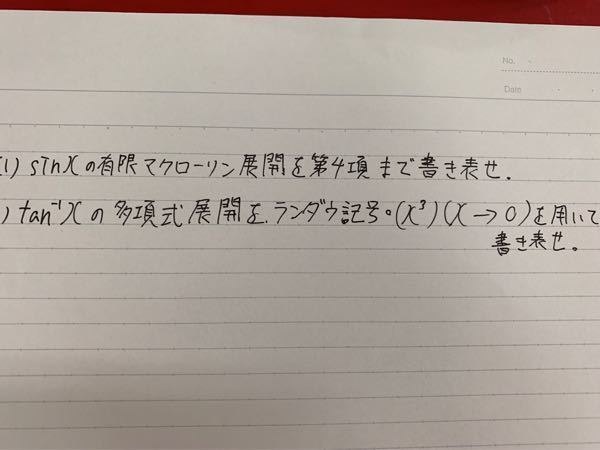 No.
Date
(1) sinxの有限マクローリン展開を第4項まで書き表せ.
) tan⁻¹xの多項式展開を,ランダウ記号o(x³)(x→0)を用いて
書き表せ。